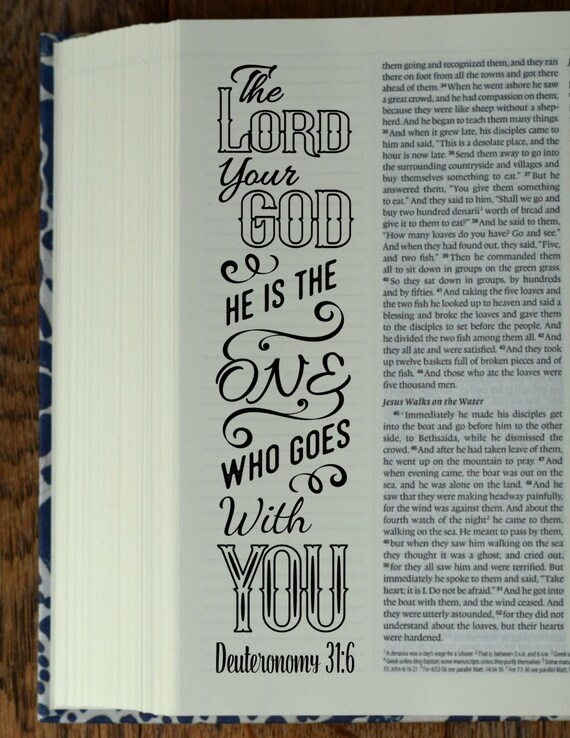 The
LORD
Your
GOD
HE IS THE
ONE
WHO GOES
With
YOU
Deuteronomy 31:6
them going and recognized them, and they ran
there on foot from all the towns and got there
ahead of them. 34 When he went ashore he saw
a great crowd, and he had compassion on them,
because they were like sheep without a shep-
herd. And he began to teach them many things.
35 And when it grew late, his disciples came to
him and said, "This is a desolate place, and the
hour is now late. 36 Send them away to go into
the surrounding countryside and villages and
buy themselves something to eat." 37 But he
answered them, "You give them something
to eat." And they said to him, "Shall we go and
buy two hundred denarii¹ worth of bread and
give it to them to eat?" 38 And he said to them,
"How many loaves do you have? Go and see."
And when they had found out, they said, "Five,
and two fish." 39 Then he commanded them
all to sit down in groups on the green grass.
40 So they sat down in groups, by hundreds
and by fifties. 41 And taking the five loaves and
the two fish he looked up to heaven and said a
blessing and broke the loaves and gave them
to the disciples to set before the people. And
he divided the two fish among them all. 42 And
they all ate and were satisfied. 43 And they took
up twelve baskets full of broken pieces and of
the fish. 44 And those who ate the loaves were
five thousand men.
Jesus Walks on the Water
45 Immediately he made his disciples get
into the boat and go before him to the other
side, to Bethsaida, while he dismissed the
crowd. 46 And after he had taken leave of them,
he went up on the mountain to pray. 47 And
when evening came, the boat was out on the
sea, and he was alone on the land. 48 And he
saw that they were making headway painfully,
for the wind was against them. And about the
fourth watch of the night² he came to them,
walking on the sea. He meant to pass by them,
49 but when they saw him walking on the sea
they thought it was a ghost, and cried out,
50 for they all saw him and were terrified. But
immediately he spoke to them and said, "Take
heart; it is I. Do not be afraid." 51 And he got into
the boat with them, and the wind ceased. And
they were utterly astounded, 52 for they did not
understand about the loaves, but their hearts
were hardened.
¹ A denarius was a day's wage for a laborer ² That is, between 3 A.M. and 6 A.M.